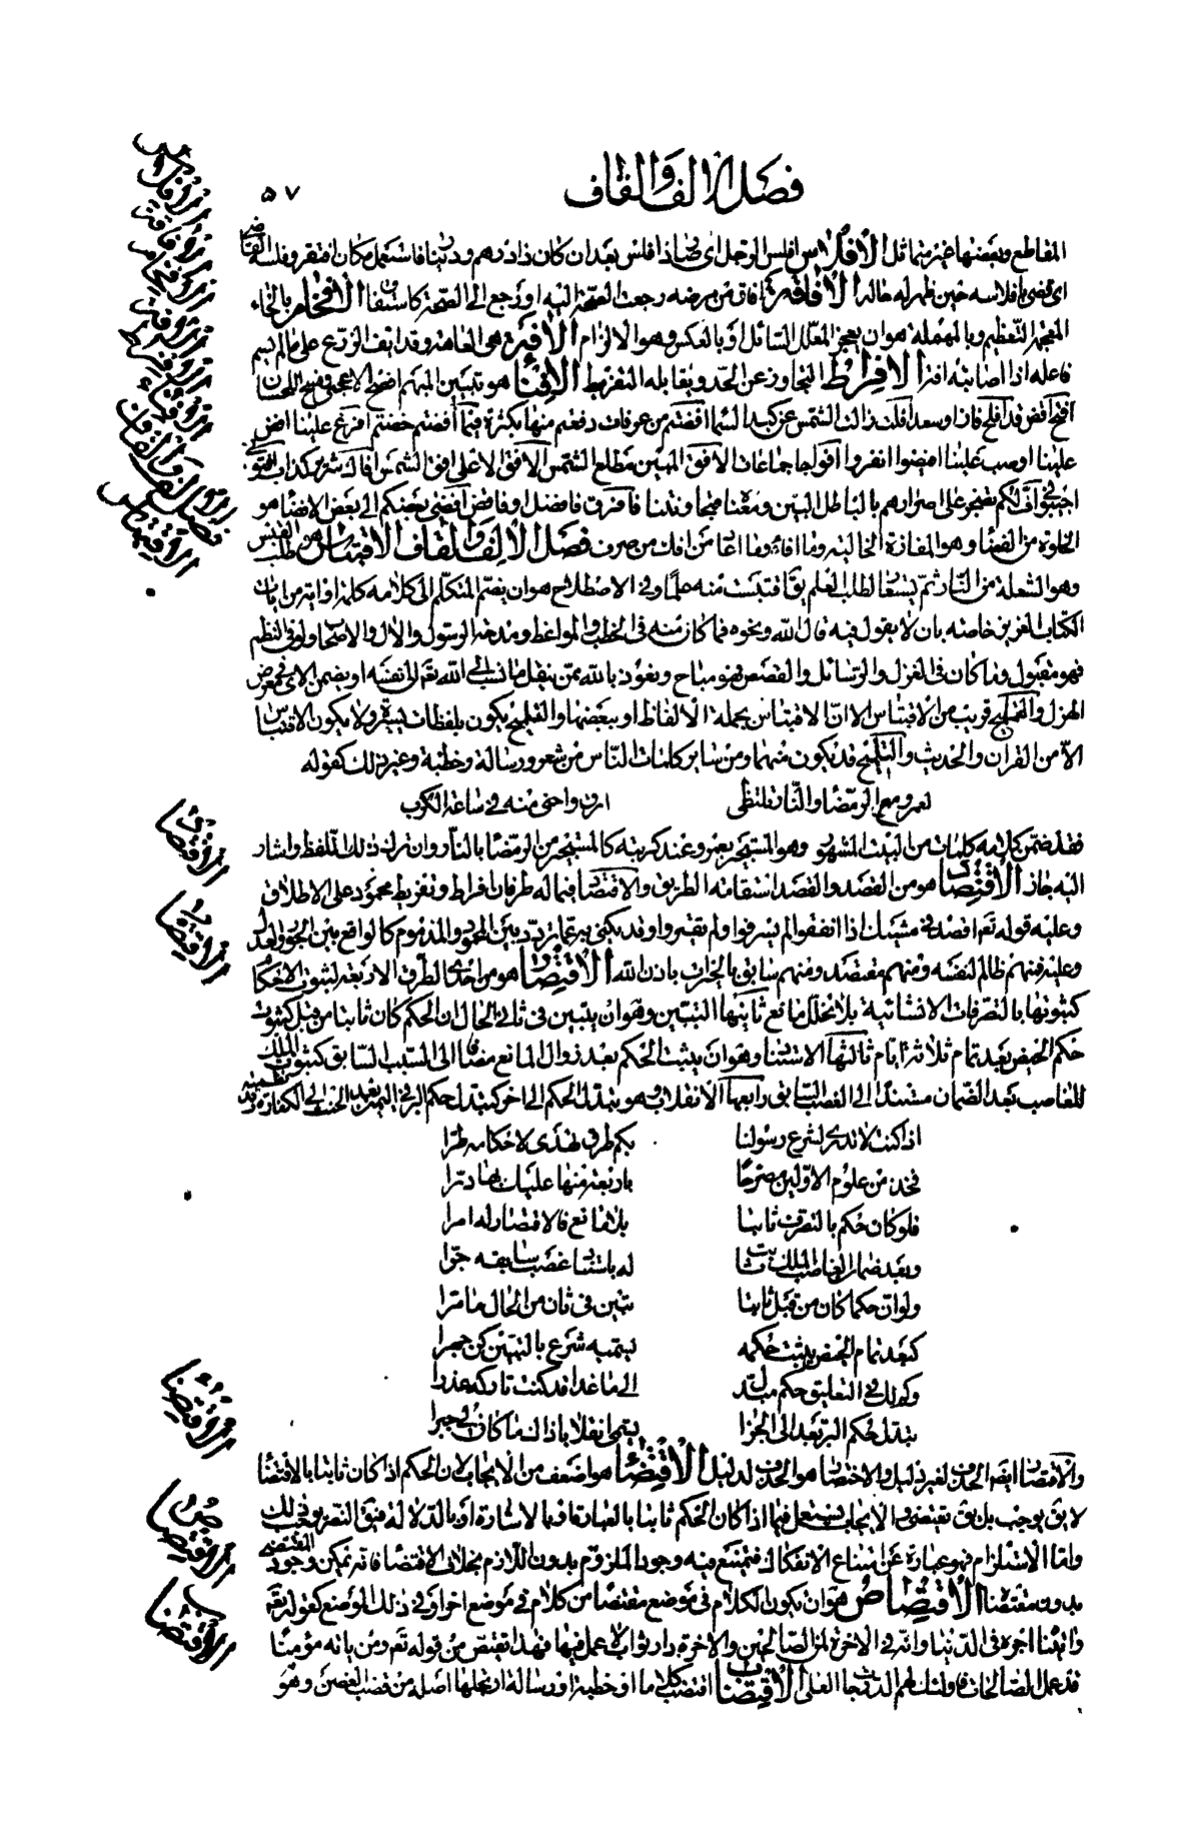 فصل الالف والقاف
٥٧
المقاطع وبعضها خير منها ثل الافلاس افلس الرجل اى صار ذا فلس بعد ان كان ذا درهم ودينار فاستعمل مكان افتقر وفلسه القاضى
اى قضى بافلاسه حين ظهر له حاله الافاقة افاق من مرضه رجعت الصحة اليه او رجع الى الصحة كاستفاق الافخام بالخاء
المعجمة التعظيم وبالمهملة هو ان يعجز المعلل السائل او بالعكس وهو الالزام الافة هى العاهة وقد ايف الزرع على ما لم يسم
فاعله اذا اصابته افة الافراط التجاوز عن الحد ويقابله التفريط الافتاء هو تبيين المبهم افصح الاعجمى وفصح اللحان
افلح قد افلح فاز وسعد افلت زالت الشمس عن كبد السماء افضتم من عرفات دفعتم منها بكثرة فيما افضتم خضتم افرغ علينا افض
علينا او صب علينا افيضوا انفروا افواجا جماعات الافق المبين مطلع الشمس الافق الاعلى افق الشمس افاك شرير كذاب
على اصرارهم بالباطل افضى بعضكم الى بعض الافضاء هو
الخلوة من الفضاء وهو المفازة الخالية وما افاء من افك من صرف فصل الالف والقاف الاقتباس هو طلب القبس
وهو الشعلة من النار ثم يستعار لطلب العلم يقال اقتبست منه علما وفى الاصطلاح هو ان يضم المتكلم الى كلامه كلمة او اية من ايات
الكتاب العزيز خاصة بان لا يقول فيه قال الله ونحوه فما كان منه فى الخطب والمواعظ ومدحة الرسول والال والاصحاب ولو فى النظم
فهو مقبول وما كان فى الغزل والرسائل والقصص فهو مباح ونعوذ بالله ممن ينقل ما نسب الى الله تعالى الى نفسه او يضمن الاى فى معرض
الهزل والتلميح قريب من الاقتباس الا ان الاقتباس بجملة الالفاظ او ببعضها والتلميح يكون بلفظات يسيرة ولا يكون الاقتباس
الا من القران والحديث والتلميح قد يكون منهما ومن سائر كلمات الناس من شعر ورسالة وخطبة وغير ذلك كقوله
لعمرو مع الرمضاء والنار تلتظى ارق واحفى منه فى ساعة الكرب
فقد ضمن كلامه كلمات من البيت المشهور وهو المستجير بعمرو عند كربته كالمستجير من الرمضاء بالنار وان ترك ذلك اللفظ واشار
اليه جاز الاقتصاد هو من القصد والقصد استقامة الطريق والاقتصاد فيما له طرفان افراط وتفريط محمود على الاطلاق
وعليه قوله تعالى اقصد فى مشيك اذا انفقوا لم يسرفوا ولم يقتروا وقد يكنى به عما يردد بين المحمود والمذموم كالواقع بين الجور والعدل
وعليه فمنهم ظالم لنفسه ومنهم مقتصد ومنهم سابق بالخيرات باذن الله الاقتصار هو من احدى الطرق الاربعة لثبوت الاحكام
كثبوتها بالتصرفات الانشائية بلا تخلل مانع ثانيها التبيين وهو ان يتبين فى ثانى الحال ان الحكم كان ثابتا من قبل كثبوت
حكم الحيض بعد تمام ثلاثة ايام ثالثها الاستناد وهو ان يثبت الحكم بعد زوال المانع مضافا الى السبب السابق كثبوت الملك
للغاصب بعد الضمان مستندا الى الغصب السابق رابعها الانقلاب وهو تبدل الحكم الى اخر كتبدل حكم البر فى اليمين بعد الحنث الى الكفارة وقد نظمته
اذا كنت لا تدرى لشرع رسولنا بكم طرق تهدى لاحكامه طرا
فخذ من علوم الاولين مصرحا باربعة منها عليك بها دترا
فلو كان حكم بالتصرف ثابتا بلا مانع فالاقتصار له امرا
وبعد ضمان الغاصب الملك ثابت له باستناد غصب سابقه جرا
ولو ان حكما كان من قبل ثابتا تبين فى ثان من الحال ما مرا
كبعد تمام الحيض يثبت حكمه يتمه شرع بالتبين كن حبرا
وكذلك فى التعليق حكم مبدل الى ما عدا قد كنت تاركه عذرا
تبدل حكم البر بعد الى الجزا يسمى انقلابا ذاك ما كان لى جبرا
والاقتصار ايضا الحذف لغير دليل والاختصار هو الحذف لدليل الاقتضاء هو اضعف من الايجاب لان الحكم اذا كان ثابتا بالاقتضاء
لا يقال يوجب بل يقال يقتضى والايجاب يستعمل فيما اذا كان الحكم ثابتا بالعبارة او بالاشارة او بالدلالة فيقال النص يوجب ذلك
واما الاستلزام فهو عبارة عن امتناع الانفكاك فيمتنع فيه وجود الملزوم بدون اللازم بخلاف الاقتضاء فانه يمكن وجود المقتضى
بدون مقتضاه الاقتصاص هو ان يكون الكلام فى موضع مقتصا من كلام فى موضع اخر او فى ذلك الموضع كقوله تعالى
واتيناه اجره فى الدنيا وانه فى الاخرة لمن الصالحين والاخرة دار ثواب لا عمل فيها فهذا مقتص من قوله تعالى ومن ياته مؤمنا
قد عمل الصالحات فاولئك لهم الدرجات العلى الاقتضاب اقتضب كلاما او خطبة او رسالة ارتجلها اصله من قضب الغصن وهو
الافلاس
الافاقة
الافخام
الافة
الافراط
الافتاء
فصل الالف والقاف
الاقتباس
الاقتصاد
الاقتصار
الاقتضاء
الاقتصاص
الاقتضاب